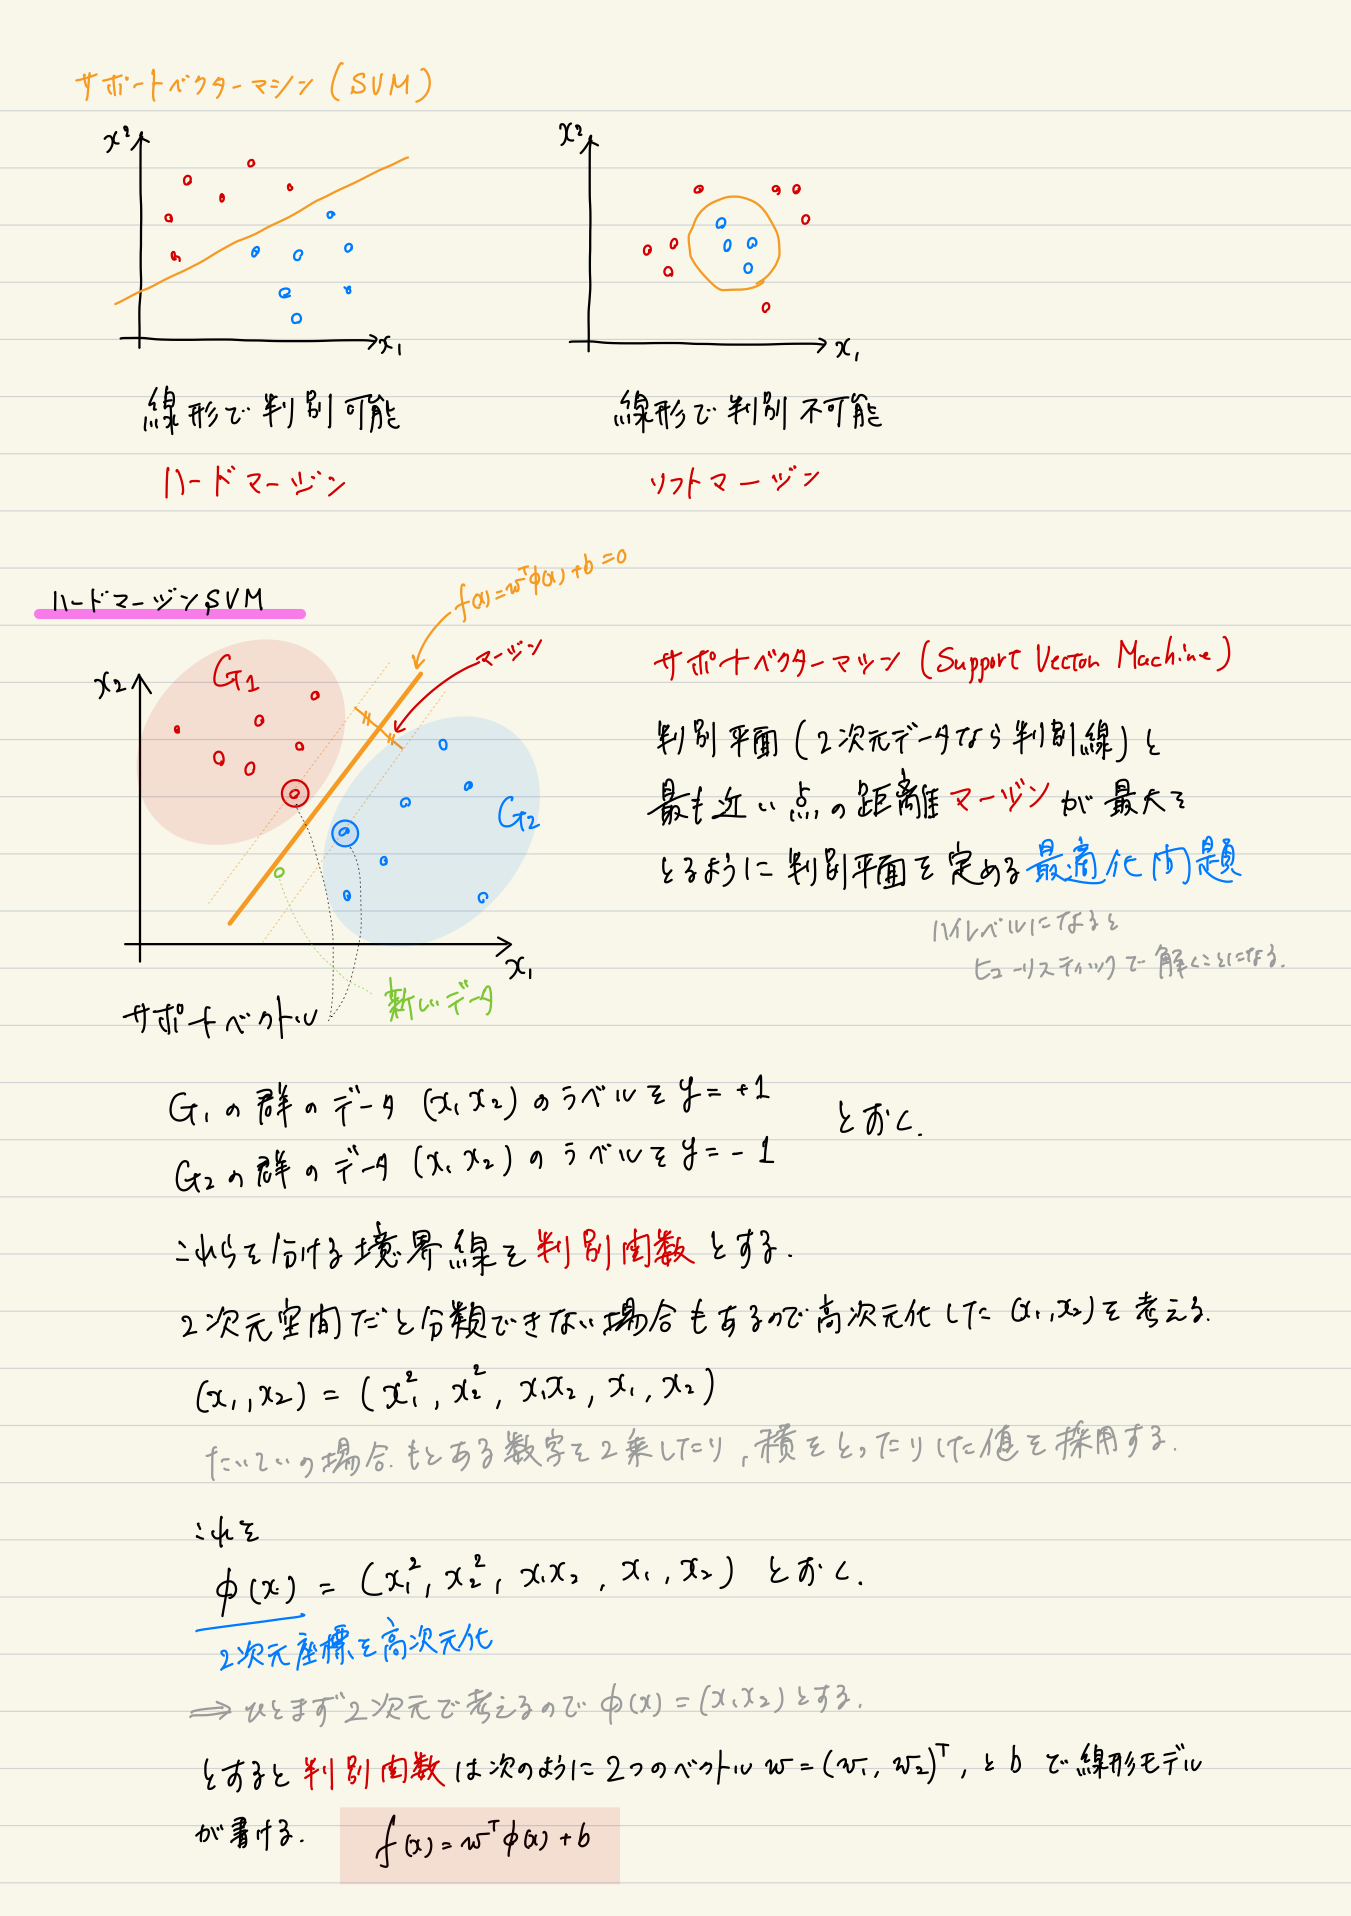 サポートベクターマシン (SVM)
x2
x1
x2
x1
線形で判別可能
線形で判別不可能
ハードマージン
ソフトマージン
ハードマージンSVM
f(x)=w^Tφ(x)+b=0
マージン
G1
x2
G2
x1
サポートベクトル
新しいデータ
サポートベクターマシン (Support Vector Machine)
判別平面 (2次元データなら判別線) と
最も近い点の距離マージンが最大を
とるように判別平面を定める最適化問題
ハイレベルになると
ヒューリスティックで解くことになる.
G1の群のデータ (x1 x2) のラベルを y=+1
G2の群のデータ (x1 x2) のラベルを y=-1
とおく.
これらを分ける境界線を判別関数とする.
2次元空間だと分類できない場合もあるので高次元化した (x1,x2) を考える.
(x1,x2) = (x1^2, x2^2, x1x2, x1, x2)
たいていの場合. もとある数字を2乗したり, 積をとったりした値を採用する.
これを
φ(x) = (x1^2, x2^2, x1x2, x1, x2) とおく.
2次元座標を高次元化
⇒ ひとまず2次元で考えるので φ(x) = (x1 x2) とする.
とすると判別関数は次のように2つのベクトル w=(w1, w2)^T, と b で線形モデル
が書ける.
f(x)=w^Tφ(x)+b